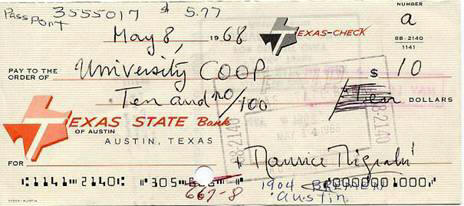 Passport 3555017 $ 5.77
NUMBER
a
May 8, 1968
TEXAS-CHECK
88-2140
1141
PAY TO THE
ORDER OF University COOP $ 10
Ten and no/100 Ten DOLLARS
TEXAS STATE Bank
OF AUSTIN
AUSTIN, TEXAS
FOR
1141 2140 305
667-8
1904
Austin.